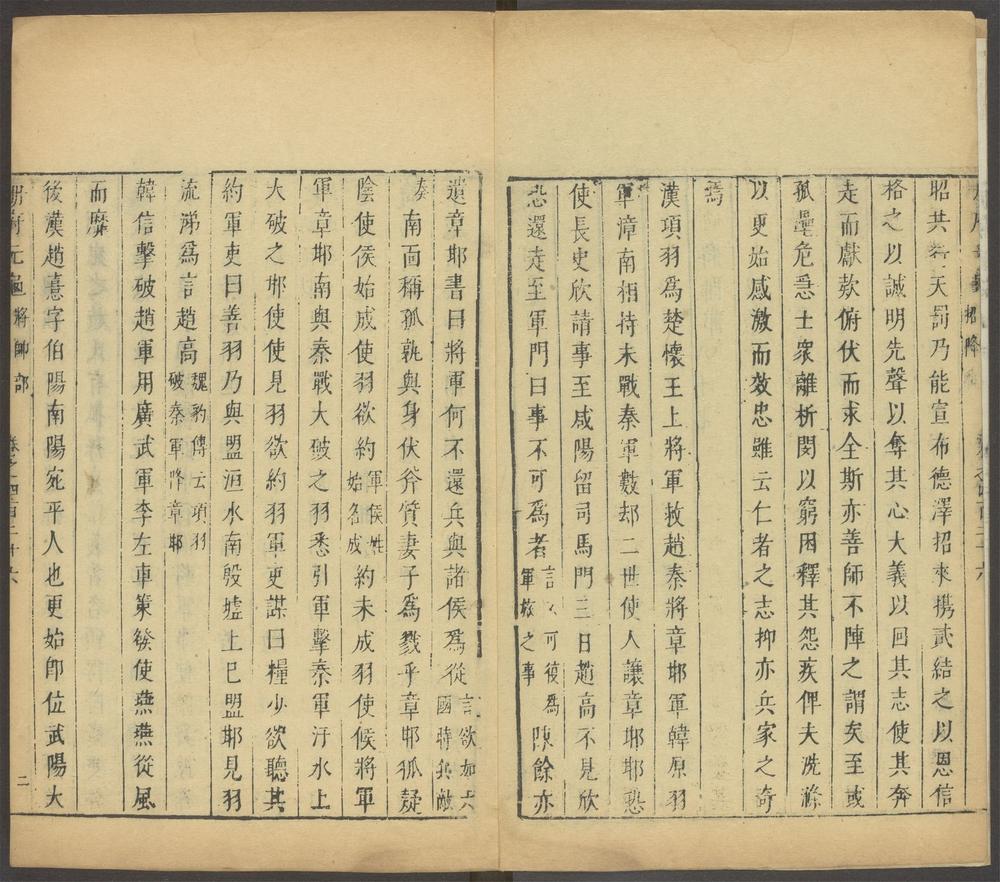 招降
昭共天罰乃能宣布德澤招來攜貳結之以恩信
格之以誠明先聲以奪其心大義以回其志使其奔
走而獻欵俯伏而求全斯亦善師不陣之謂矣至或
孤壘危急士衆離析閔以窮困釋其怨疾俾夫洗滌
以更始感激而效忠雖云仁者之志抑亦兵家之奇
焉
漢項羽爲楚懷王上將軍救趙秦將章邯軍韓原羽
軍漳南相持未戰秦軍數却二世使人讓章邯邯恐
使長史欣請事至咸陽留司馬門三日趙高不見欣
恐還走至軍門曰事不可爲者言不可復爲軍旅之事陳餘亦
遺章邯書曰將軍何不還兵與諸侯爲從言欲如六國時共敵
秦南面稱孤孰與身伏斧質妻子爲戮乎章邯狐疑
陰使侯始成使羽欲約軍侯姓始名成約未成羽使候將軍
軍章邯南與秦戰大破之羽悉引軍擊秦軍汙水上
大破之邯使使見羽欲約羽軍吏謀曰糧少欲聽其
約軍吏曰善羽乃與盟洹水南殷墟上已盟邯見羽
流涕爲言趙高魏豹傳云項羽破秦軍降章邯
韓信擊破趙軍用廣武軍李左車策發使燕燕從風
而靡
後漢趙憙字伯陽南陽宛平人也更始即位武陽大
册府元龜 將帥部 卷之四百二十六 二